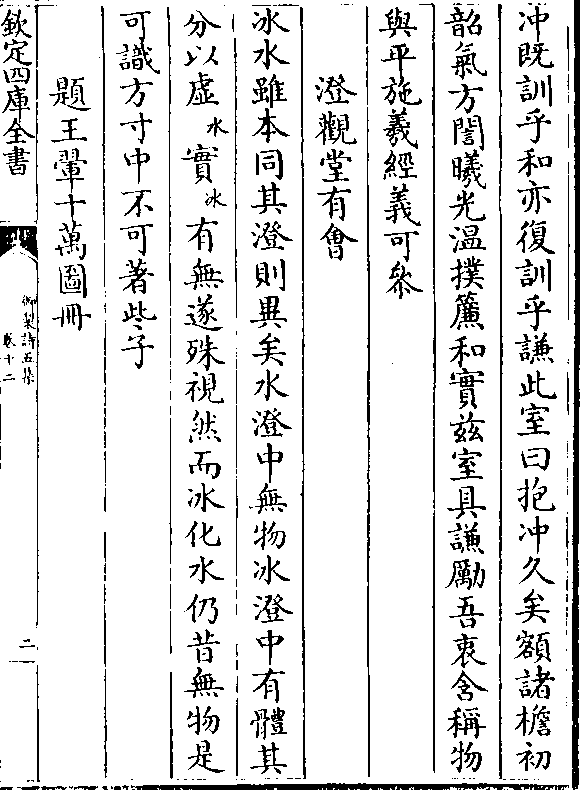 冲既訓乎和亦復訓乎謙此室曰抱冲久矣額諸檐初
韶氣方誾曦光温撲簾和實兹室具謙勵吾衷含稱物
與平施羲經義可叅
澄觀堂有會
冰水雖本同其澄則異矣水澄中無物冰澄中有體其
分以虛水實冰有無遂殊視然而冰化水仍昔無物是
可識方寸中不可著些子
題王翬十萬圖冊
欽定四庫全書
御製詩五集
卷十二
二